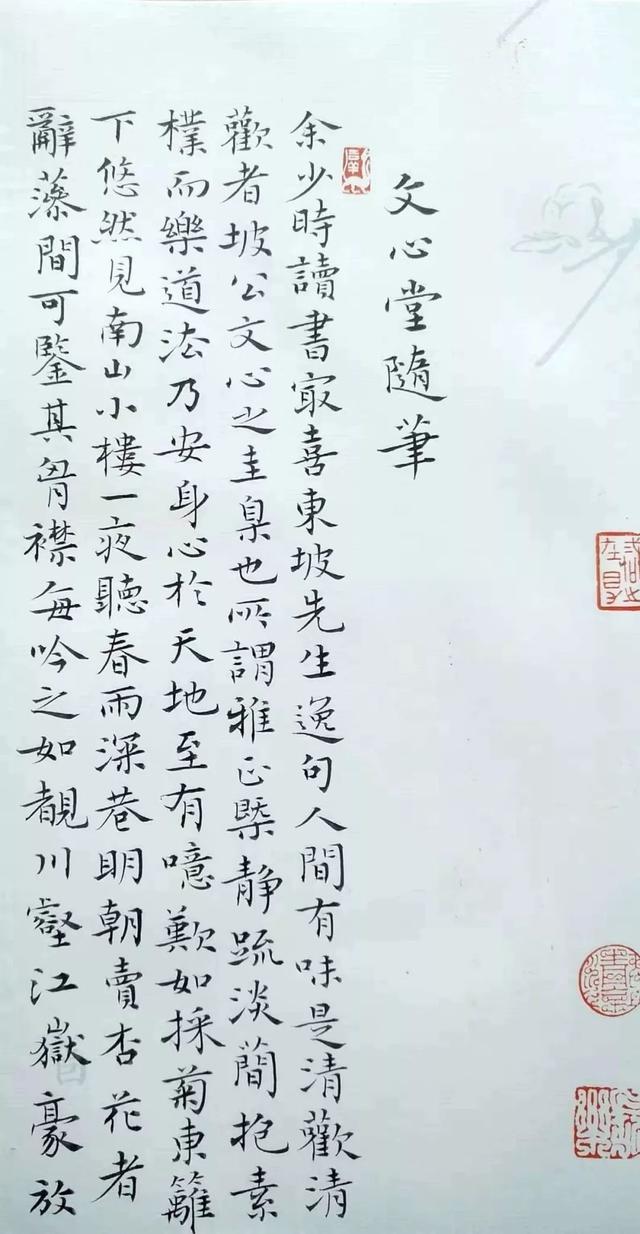 文心堂隨筆
余少時讀書㝡喜東坡先生逸句人間有味是清歡清
歡者坡公文心之圭臬也所謂雅正槩静疏淡簡抱素
樸而樂道法乃安身心於天地至有噫歎如採菊東籬
下悠然見南山小樓一夜聽春雨深巷明朝賣杏花者
辭藻間可鑒其胷襟每吟之如覩川壑江嶽豪放